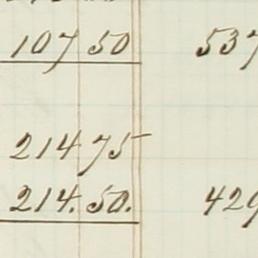 107 50 537
214 75
214. 50. 429